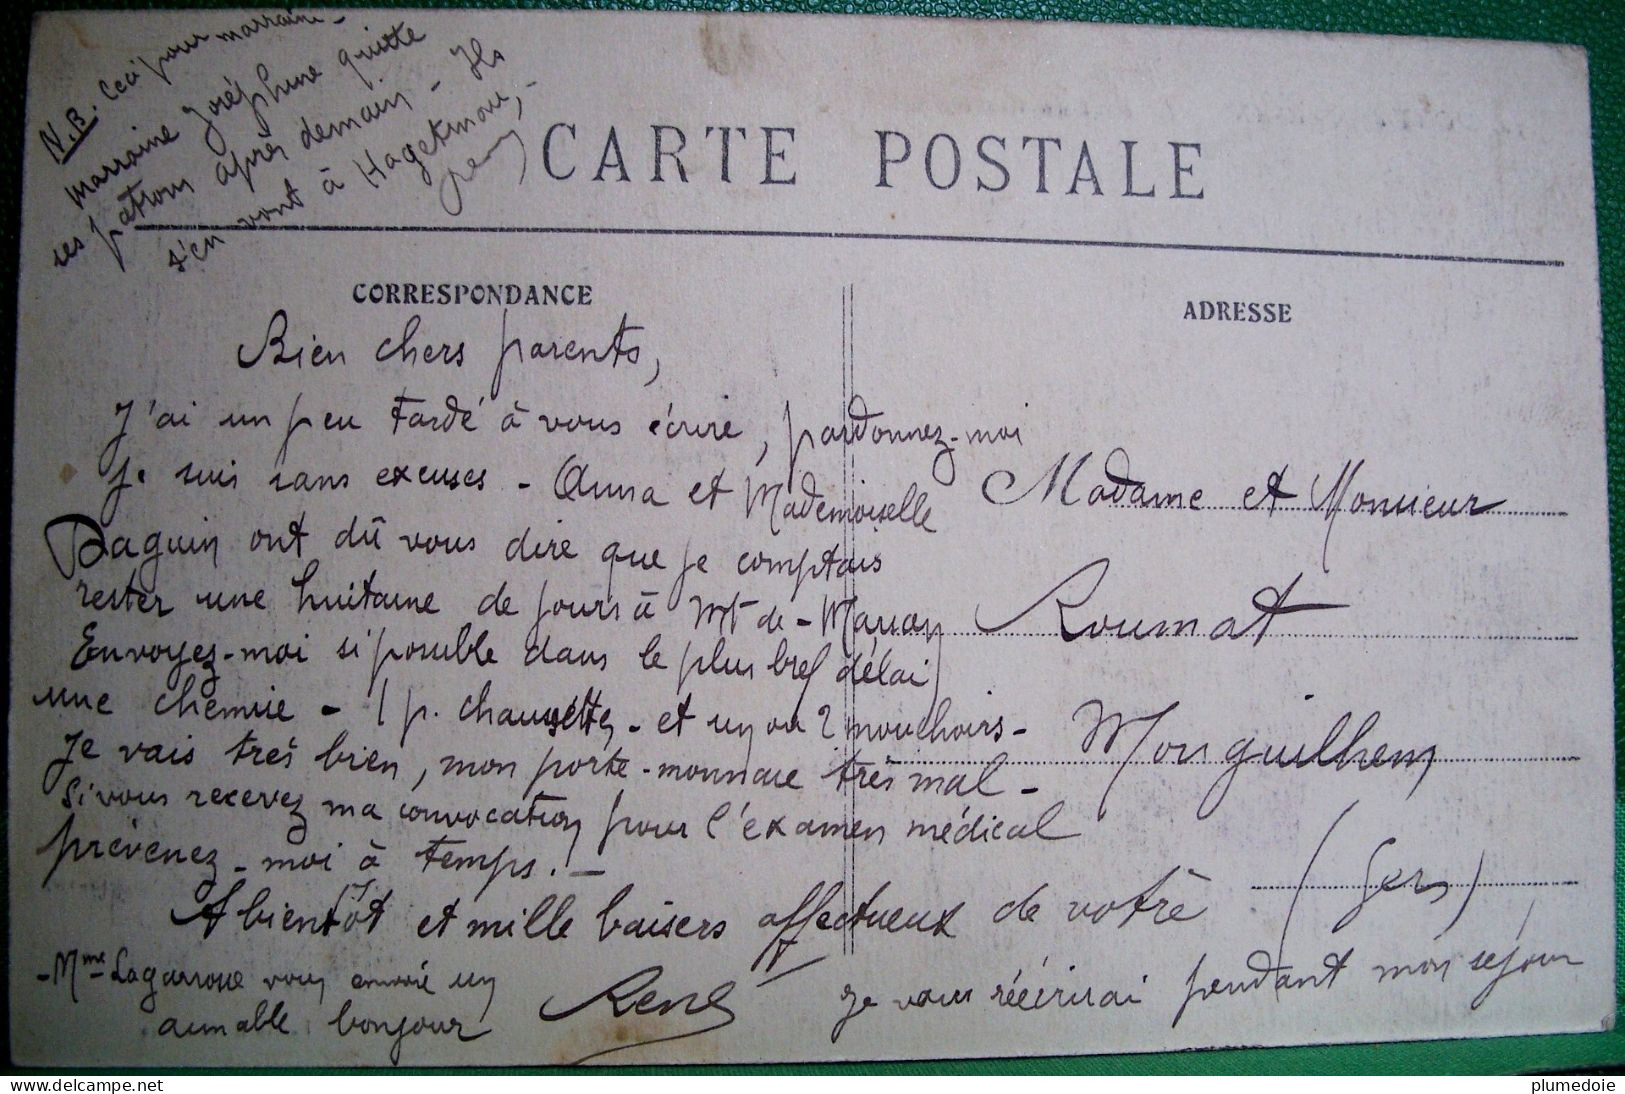 N.B. Ceci pour marraine -
Marraine Joséphine quitte
ses patrons après demain - Ils
s'en vont à Hagetmau, -
CARTE POSTALE
CORRESPONDANCE
ADRESSE
Bien chers parents,
J'ai un peu tardé à vous écrire, pardonnez-moi
je suis sans excuses - Anna et Mademoiselle
Daguin ont dû vous dire que je comptais
rester une huitaine de jours à Mt-de-Marsan
Envoyez-moi si possible dans le plus bref délai
une chemise - 1 p. chaussettes - et un ou 2 mouchoirs -
Je vais très bien, mon porte-monnaie très mal -
Si vous recevez ma convocation pour l'examen médical
prévenez-moi à temps. -
A bientôt et mille baisers affectueux de votre
René
- Mme Lagarroue vous envoie un
aimable bonjour
Je vous réécrirai pendant mon séjour
Madame et Monsieur
Roumat
Monguilhem
(Gers)
plumedoie